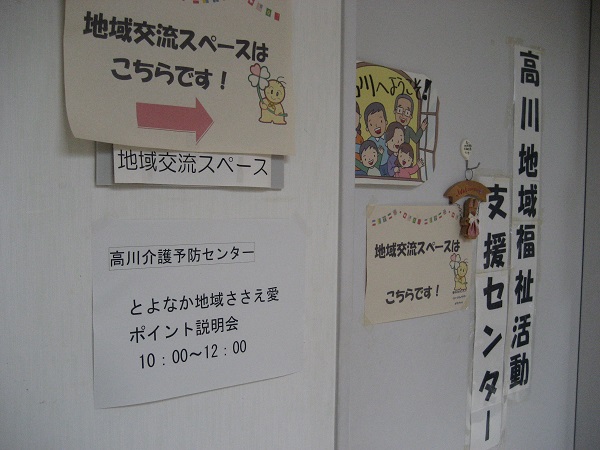 地域交流スペースは
こちらです！
地域交流スペース
高川介護予防センター
とよなか地域ささえ愛
ポイント説明会
10：00～12：00
川へようこそ!
地域交流スペースは
こちらです！
高川地域福祉活動
支援センター